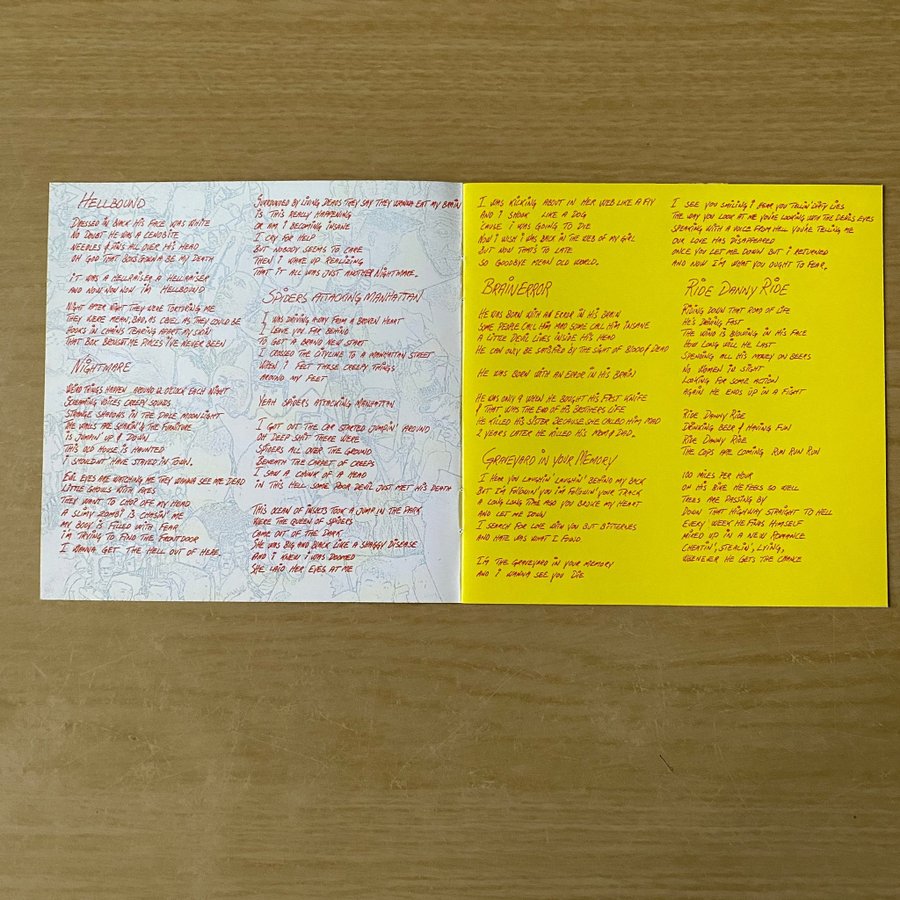 HELLBOUND
DRESSED IN BLACK HIS FACE WAS WHITE
NO DOUBT HE WAS A CENOBITE
NEEDLES & PINS ALL OVER HIS HEAD
OH GOD THAT GOIS GONNA BE MY DEATH
IT WAS A HELLRAISER A HELLRAISER
AND NOW NOW NOW I'M HELLBOUND
NIGHT AFTER NIGHT THEY WERE TORTURING ME
THEY WERE MEAN, BAD, AS CRUEL AS THEY COULD BE
HOOKS IN CHAINS TEARING APART MY SKIN
THAT BOX BROUGHT ME PLACES I'VE NEVER BEEN
NIGHTMARE
WEIRD THINGS HAPPEN AROUND 12 O'CLOCK EACH NIGHT
SCREAMING VOICES CREEPY SOUNDS
STRANGE SHADOWS IN THE DARK MOONLIGHT
THE WALLS ARE SHAKIN & THE FURNITURE
IS JUMPIN' UP & DOWN
THIS OLD HOUSE IS HAUNTED
I SHOULDN'T HAVE STAYED IN TOWN.
EVIL EYES ARE WATCHING ME THEY WANNA SEE ME DEAD
LITTLE GHOULS WITH AXES
THEY WANT TO CHOP OFF MY HEAD
A SLIMY ZOMBI IS CHASIN' ME
MY BODY IS FILLED WITH FEAR
I'M TRYING TO FIND THE FRONTDOOR
I WANNA GET THE HELL OUT OF HERE.
SURROUNDED BY LIVING DEADS THEY SAY THEY WANNA EAT MY BRAIN
IS THIS REALLY HAPPENING
OR AM I BECOMING INSANE
I CRY FOR HELP
BUT NOBODY SEEMS TO CARE
THEN I WAKE UP REALIZING
THAT IT ALL WAS JUST ANOTHER NIGHTMARE.
SPIDERS ATTACKING MANHATTAN
I WAS DRIVING AWAY FROM A BROKEN HEART
LEAVE YOU FAR BEHIND
TO GET A BRAND NEW START
I CROSSED THE CITYLINE TO A MANHATTAN STREET
WHEN I FELT THESE CREEPY THINGS
AROUND MY FEET
YEAH SPIDERS ATTACKING MANHATTAN
I GOT OUT THE CAR STARTED JUMPIN' AROUND
OH DEEP SHIT THERE WERE
SPIDERS ALL OVER THE GROUND
BENEATH THE CARPET OF CREEPS
I SAW A CHUNK OF A HEAD
IN THIS HELL SOME POOR DEVIL JUST MET HIS DEATH
THIS OCEAN OF INSECTS TOOK A JUMP IN THE PARK
WERE THE QUEEN OF SPIDERS
CAME OUT OF THE DARK
SHE WAS BIG AND BLACK LIKE A SHAGGY DISEASE
AND I KNEW I WAS DOOMED
SHE LAID HER EYES AT ME
I WAS KICKING ABOUT IN HER WEB LIKE A FLY
AND I SHOOK LIKE A DOG
'CAUSE I WAS GOING TO DIE
NOW I WISH I WAS BACK IN THE WEB OF MY GIRL
BUT NOW THAT'S TO LATE
SO GOODBYE MEAN OLD WORLD.
BRAINERROR
HE WAS BORN WITH AN ERROR IN HIS BRAIN
SOME PEOPLE CALL HIM MAD SOME CALL HIM INSANE
A LITTLE DEVIL LIVES INSIDE HIS HEAD
HE CAN ONLY BE SATISFIED BY THE SIGHT OF BLOOD & DEAD
HE WAS BORN WITH AN ERROR IN HIS BRAIN
HE WAS ONLY 9 WHEN HE BOUGHT HIS FIRST KNIFE
& THAT WAS THE END OF HIS BROTHERS LIFE
HE KILLED HIS SISTER BECAUSE SHE CALLED HIM MAD
2 YEARS LATER HE KILLED HIS MOM & DAD.
GRAVEYARD IN YOUR MEMORY
I HEAR YOU LAUGHIN' LAUGHIN' BEHIND MY BACK
BUT I'M FOLLOWIN' YOU I'M FOLLOWIN' YOUR TRACK
A LONG LONG TIME AGO YOU BROKE MY HEART
AND LET ME DOWN
I SEARCH FOR LOVE WITH YOU BUT BITTERNES
AND HATE WAS WHAT I FOUND
I'M THE GRAVEYARD IN YOUR MEMORY
AND I WANNA SEE YOU DIE
I SEE YOU SMILING I HEAR YOU TELLIN' DIRTY LIES
THE WAY YOU LOOK AT ME YOU'RE LOOKING WITH THE DEVIL'S EYES
SPEAKING WITH A VOICE FROM HELL YOU'RE TELLING ME
OUR LOVE HAS DISAPPEARED
ONCE YOU LET ME DOWN BUT I RETURNED
AND NOW I'M WHAT YOU OUGHT TO FEAR.
RIDE DANNY RIDE
RIDING DOWN THAT ROAD OF LIFE
HE'S DRIVING FAST
THE WIND IS BLOWING IN HIS FACE
HOW LONG WILL HE LAST
SPENDING ALL HIS MONEY ON BEERS
NO WOMEN IN SIGHT
LOOKING FOR SOME ACTION
AGAIN HE ENDS UP IN A FIGHT
RIDE DANNY RIDE
DRINKING BEER & HAVING FUN
RIDE DANNY RIDE
THE COPS ARE COMING RUN RUN RUN
100 MILES PER HOUR
ON HIS BIKE HE FEELS SO WELL
TREES ARE PASSING BY
DOWN THAT HIGHWAY STRAIGHT TO HELL
EVERY WEEK HE FINDS HIMSELF
MIXED UP IN A NEW ROMANCE
CHEATIN', STEALIN', LYING,
WHENEVER HE GETS THE CHANCE